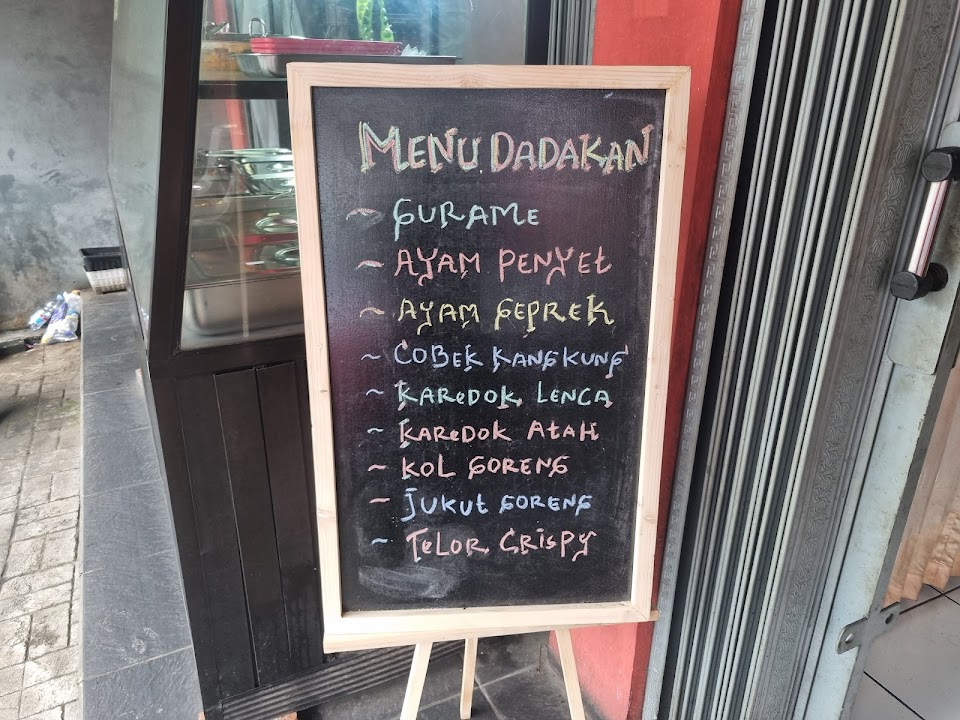 MENU DADAKAN
~ GURAME
~ AYAM PENYEt
~ AYAM GEPREK
~ COBEK KANGKUNG
~ KAReDOK LENCA
~ KAReDOK AtAH
~ KOL GORENG
~ JUKUt GORENG
~ TeLOR CRiSPY